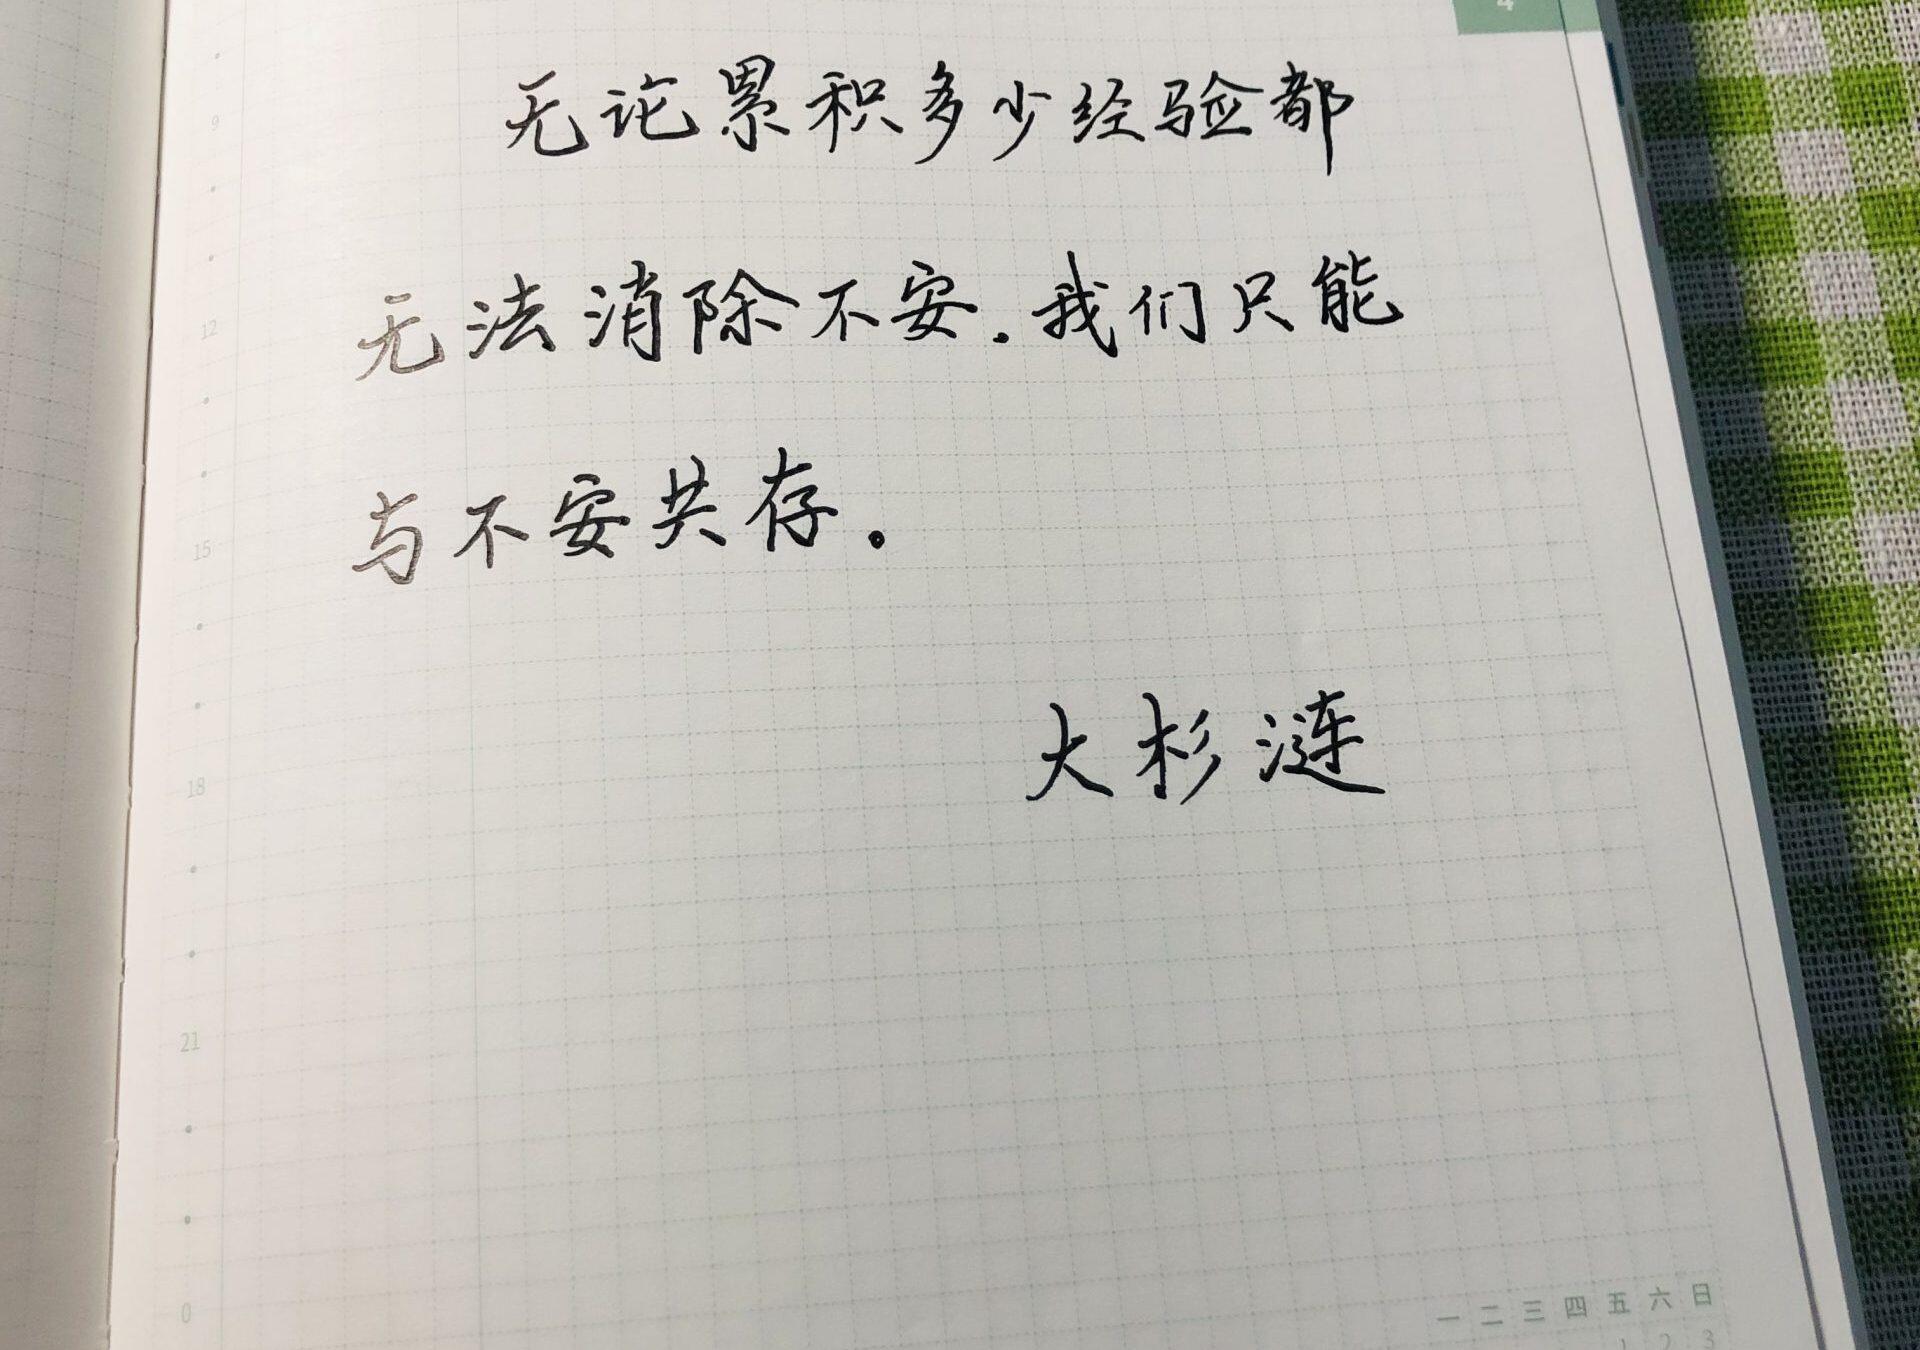 4
9
无论累积多少经验都
12
无法消除不安.我们只能
15
与不安共存。
18
大杉涟
21
0
一 二 三 四 五 六 日
1 2 3